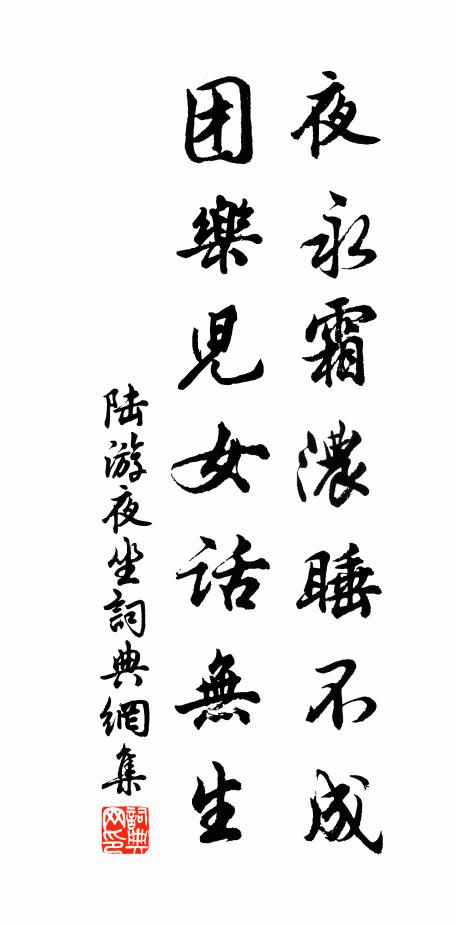 夜永霜濃睡不成
团欒児女話無生
陆游夜坐詞典網集
詞典网印